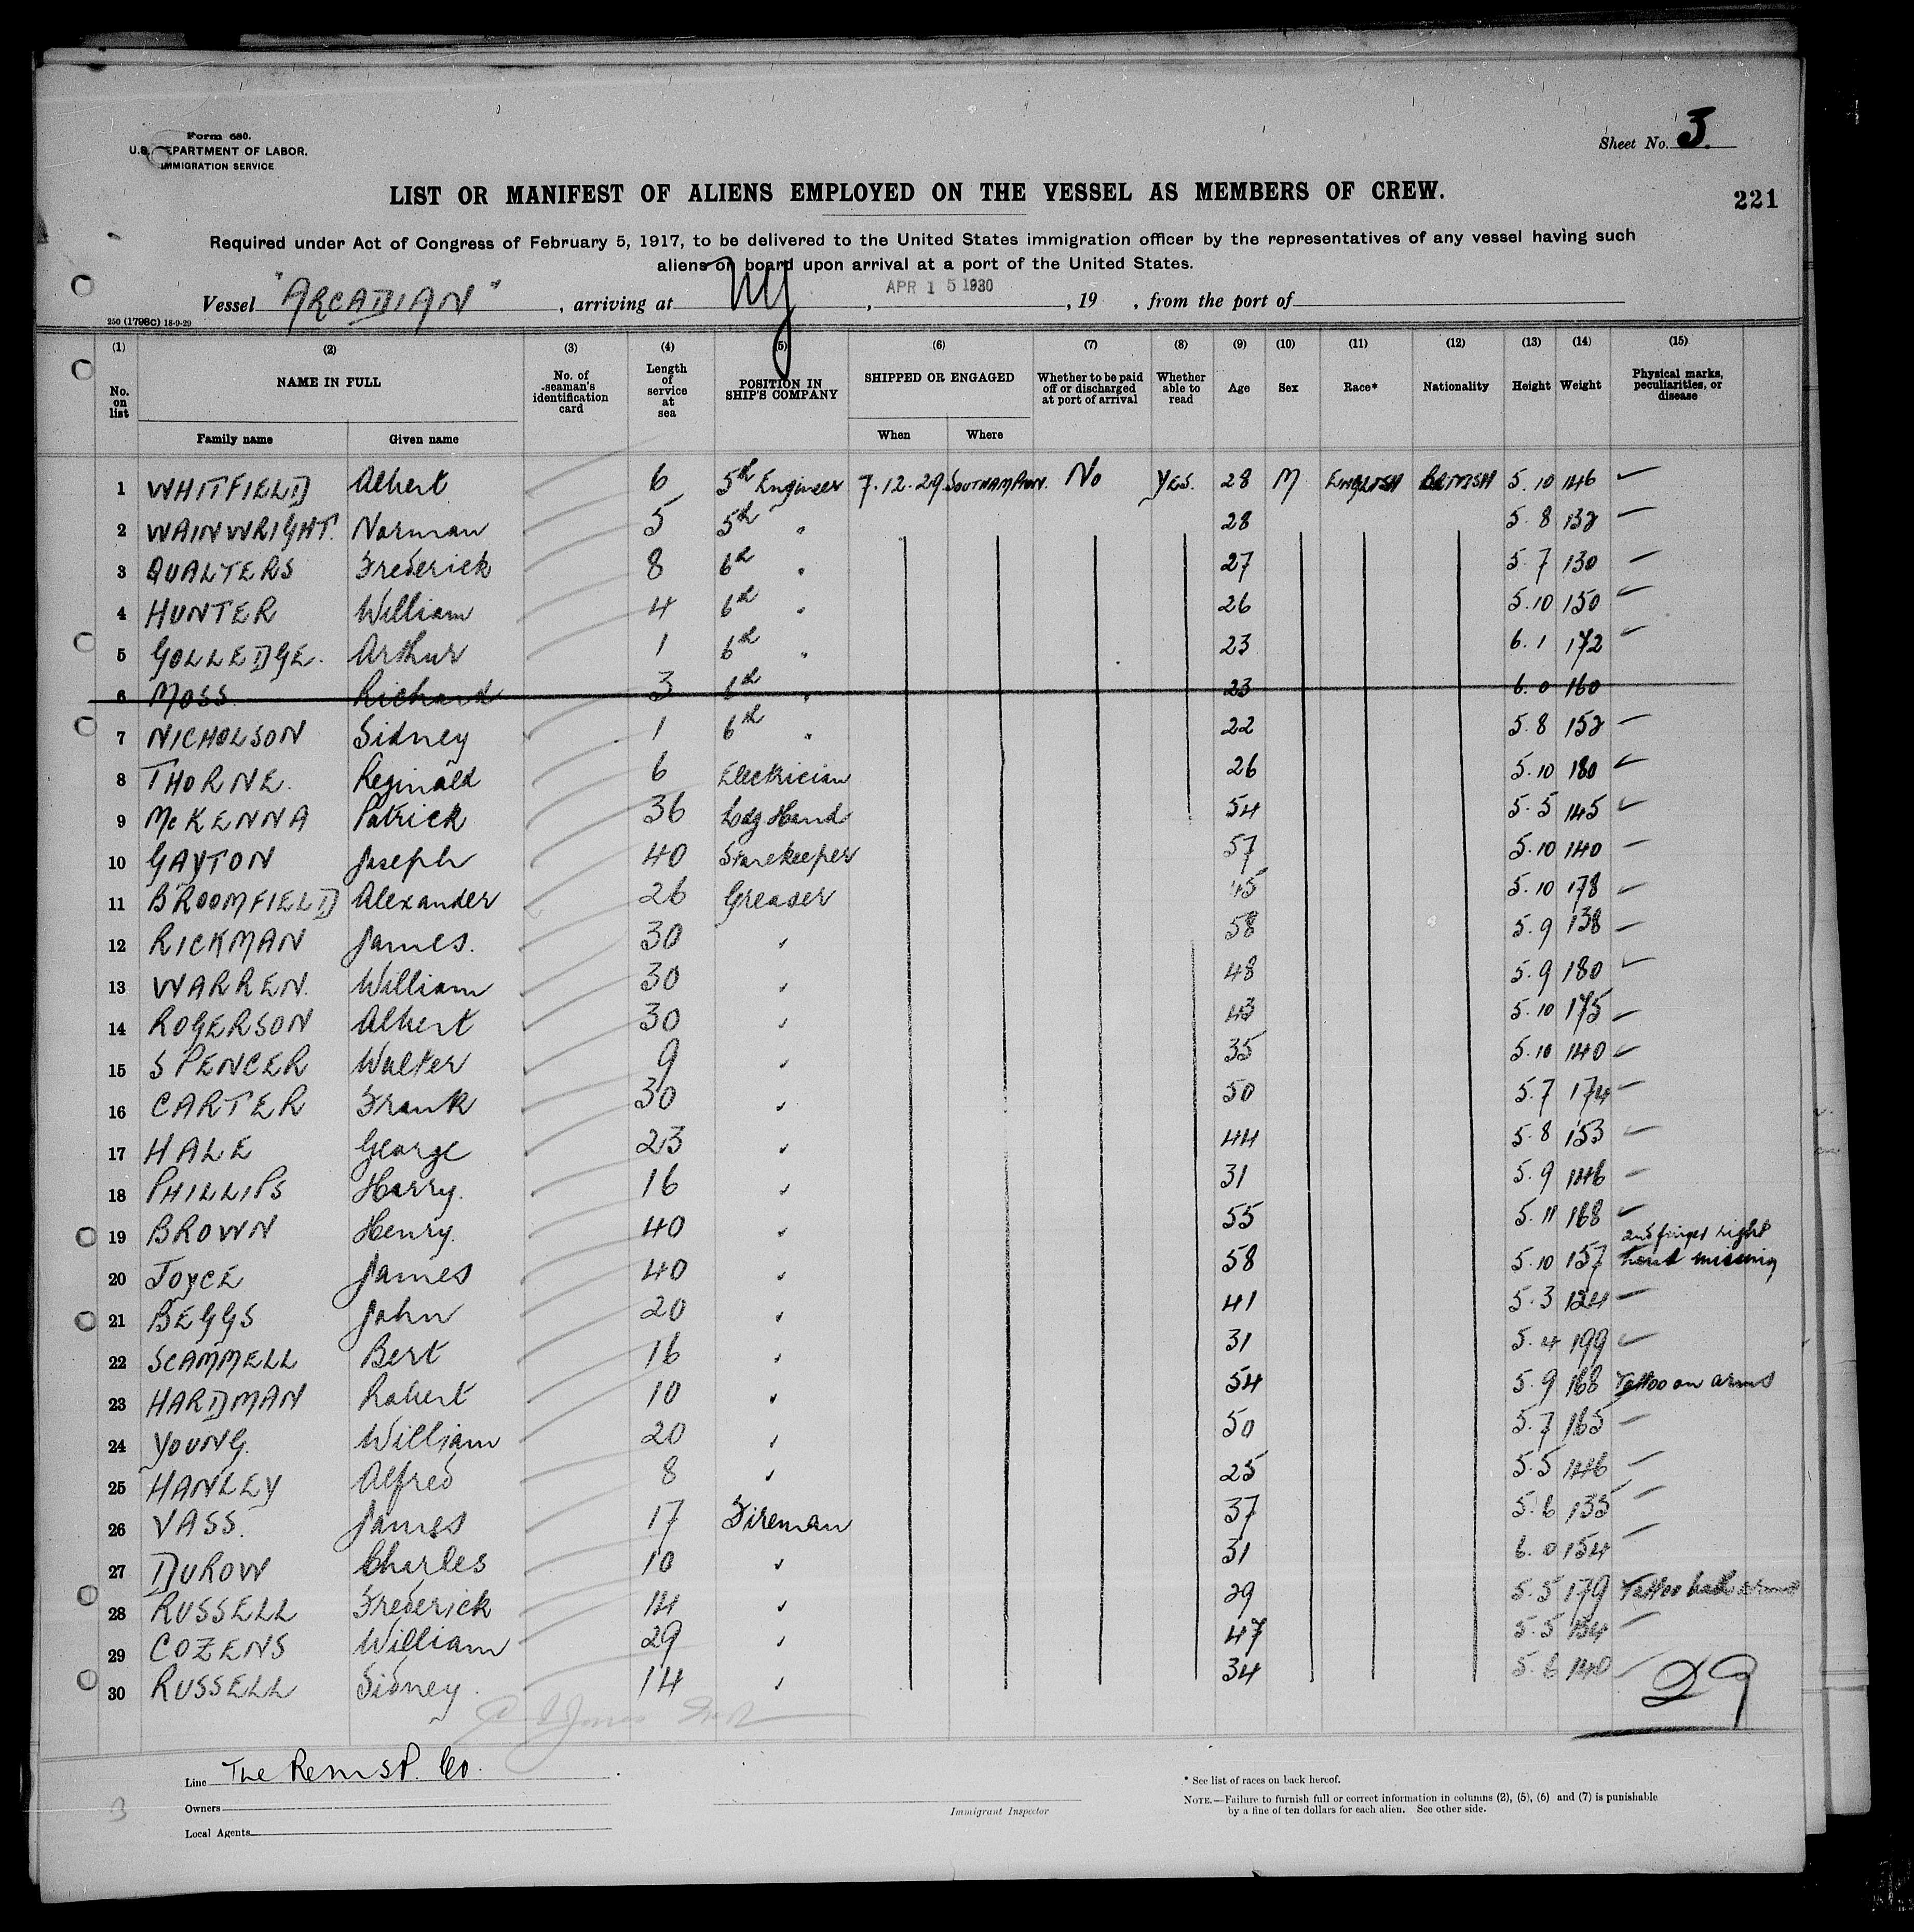 Form 680.
U.S. DEPARTMENT OF LABOR.
IMMIGRATION SERVICE
Sheet No. 3.
LIST OR MANIFEST OF ALIENS EMPLOYED ON THE VESSEL AS MEMBERS OF CREW.
221
Required under Act of Congress of February 5, 1917, to be delivered to the United States immigration officer by the representatives of any vessel having such
aliens on board upon arrival at a port of the United States.
Vessel "ARCADIAN", arriving at NY, APR 15 1930, 19 , from the port of
250 (1798C) 18-9-29
(1) (2) (3) (4) (5) (6) (7) (8) (9) (10) (11) (12) (13) (14) (15)
No. on list NAME IN FULL Family name Given name No. of seaman's identification card Length of service at sea POSITION IN SHIP'S COMPANY SHIPPED OR ENGAGED When Where Whether to be paid off or discharged at port of arrival Whether able to read Age Sex Race* Nationality Height Weight Physical marks, peculiarities, or disease
1 WHITFIELD Albert 6 5th Engineer 7.12.29 SOUTHAMPTON. No YES. 28 M ENGLISH BRITISH 5.10 146 —
2 WAINWRIGHT. Norman 5 5th " 28 5.8 132 —
3 QUALTERS Frederick 8 6th " 27 5.7 130 —
4 HUNTER William 4 6th " 26 5.10 150 —
5 GOLLEDGE. Arthur 1 6th " 23 6.1 172 —
6 MOSS Richard 3 6th " 23 6.0 160
7 NICHOLSON Sidney 1 6th " 22 5.8 152 —
8 THORNE. Reginald 6 Electrician 26 5.10 180 —
9 McKENNA Patrick 36 Ldg Hand 54 5.5 145 —
10 GAYTON Joseph 40 Storekeeper 57 5.10 140 —
11 BROOMFIELD Alexander 26 Greaser 45 5.10 178 —
12 RICKMAN James. 30 " 58 5.9 138 —
13 WARREN. William 30 " 48 5.9 180 —
14 ROGERSON Albert 30 " 43 5.10 175 —
15 SPENCER Walter 9 " 35 5.10 140 —
16 CARTER Frank 30 " 50 5.7 174 —
17 HALE George 23 " 44 5.8 153 —
18 PHILLIPS Harry. 16 " 31 5.9 146 —
19 BROWN Henry. 40 " 55 5.11 168 —
20 JOYCE James 40 " 58 5.10 157 2nd finger right hand missing
21 BEGGS John 20 " 41 5.3 124 —
22 SCAMMELL Bert 16 " 31 5.4 199 —
23 HARDMAN Robert 10 " 54 5.9 168 Tattoo on arms
24 YOUNG. William 20 " 50 5.7 165 —
25 HANLEY Alfred 8 " 25 5.5 146 —
26 VASS. James 17 Fireman 37 5.6 135 —
27 DUROW Charles 10 " 31 6.0 154 —
28 RUSSELL Frederick 14 " 29 5.5 179 Tattoo both arms
29 COZENS William 29 " 47 5.5 134 —
30 RUSSELL Sidney. 14 " 34 5.6 140 —
29
Line The Rem S.P. Co.
* See list of races on back hereof.
Owners
Immigrant Inspector
NOTE.—Failure to furnish full or correct information in columns (2), (5), (6) and (7) is punishable
by a fine of ten dollars for each alien. See other side.
Local Agents
3